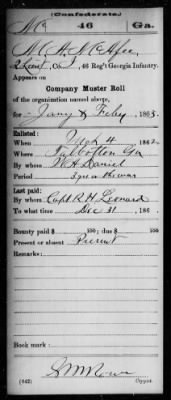 (Confederate.)
Mc 46 Ga.
M. H. McAfee
2 Lieut, Co. I, 46 Reg't Georgia Infantry.
Appears on
Company Muster Roll
of the organization named above,
for Jany & Feby, 1863.
Enlisted:
When Mch 4, 1862.
Where Talbotton Ga
By whom W H Daniel
Period 3 yrs or the war
Last paid:
By whom Capt R. H. Leonard
To what time Dec 31, 186
Bounty paid $ 100; due $ 100
Present or absent Present
Remarks:
Book mark:
(642) Copyist.